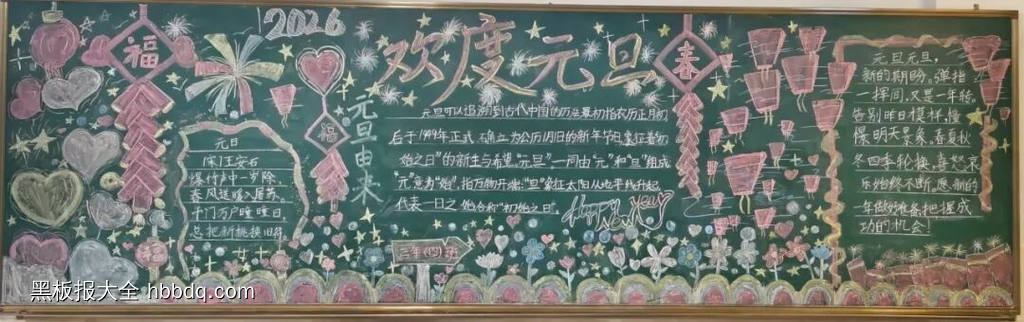 2026
欢度元旦
福
福
春
福
元日
(宋)王安石
爆竹声中一岁除,
春风送暖入屠苏。
千门万户曈曈日,
总把新桃换旧符
元旦由来
元旦可以追溯到古代中国的历法最初指农历正月初
后于1949年正式确立为公历1月1日的新年节日象征着"初
始之日"的新生与希望."元旦"一词由"元"和"旦"组成
"元"意为"始",指万物开端;"旦"象征太阳从地平线升起,
代表一日之始合称"初始之日".
Happy
New Year
三年(四)班
元旦元旦,
新的期盼,弹指
一挥间,又是一年轮。
告别昨日模样,憧
憬明天景象.春夏秋
冬四季轮换,喜怒哀
乐始终不断,愿新的
一年做好准备,把握成
功的机会!
黑板报大全 hbbdq.com